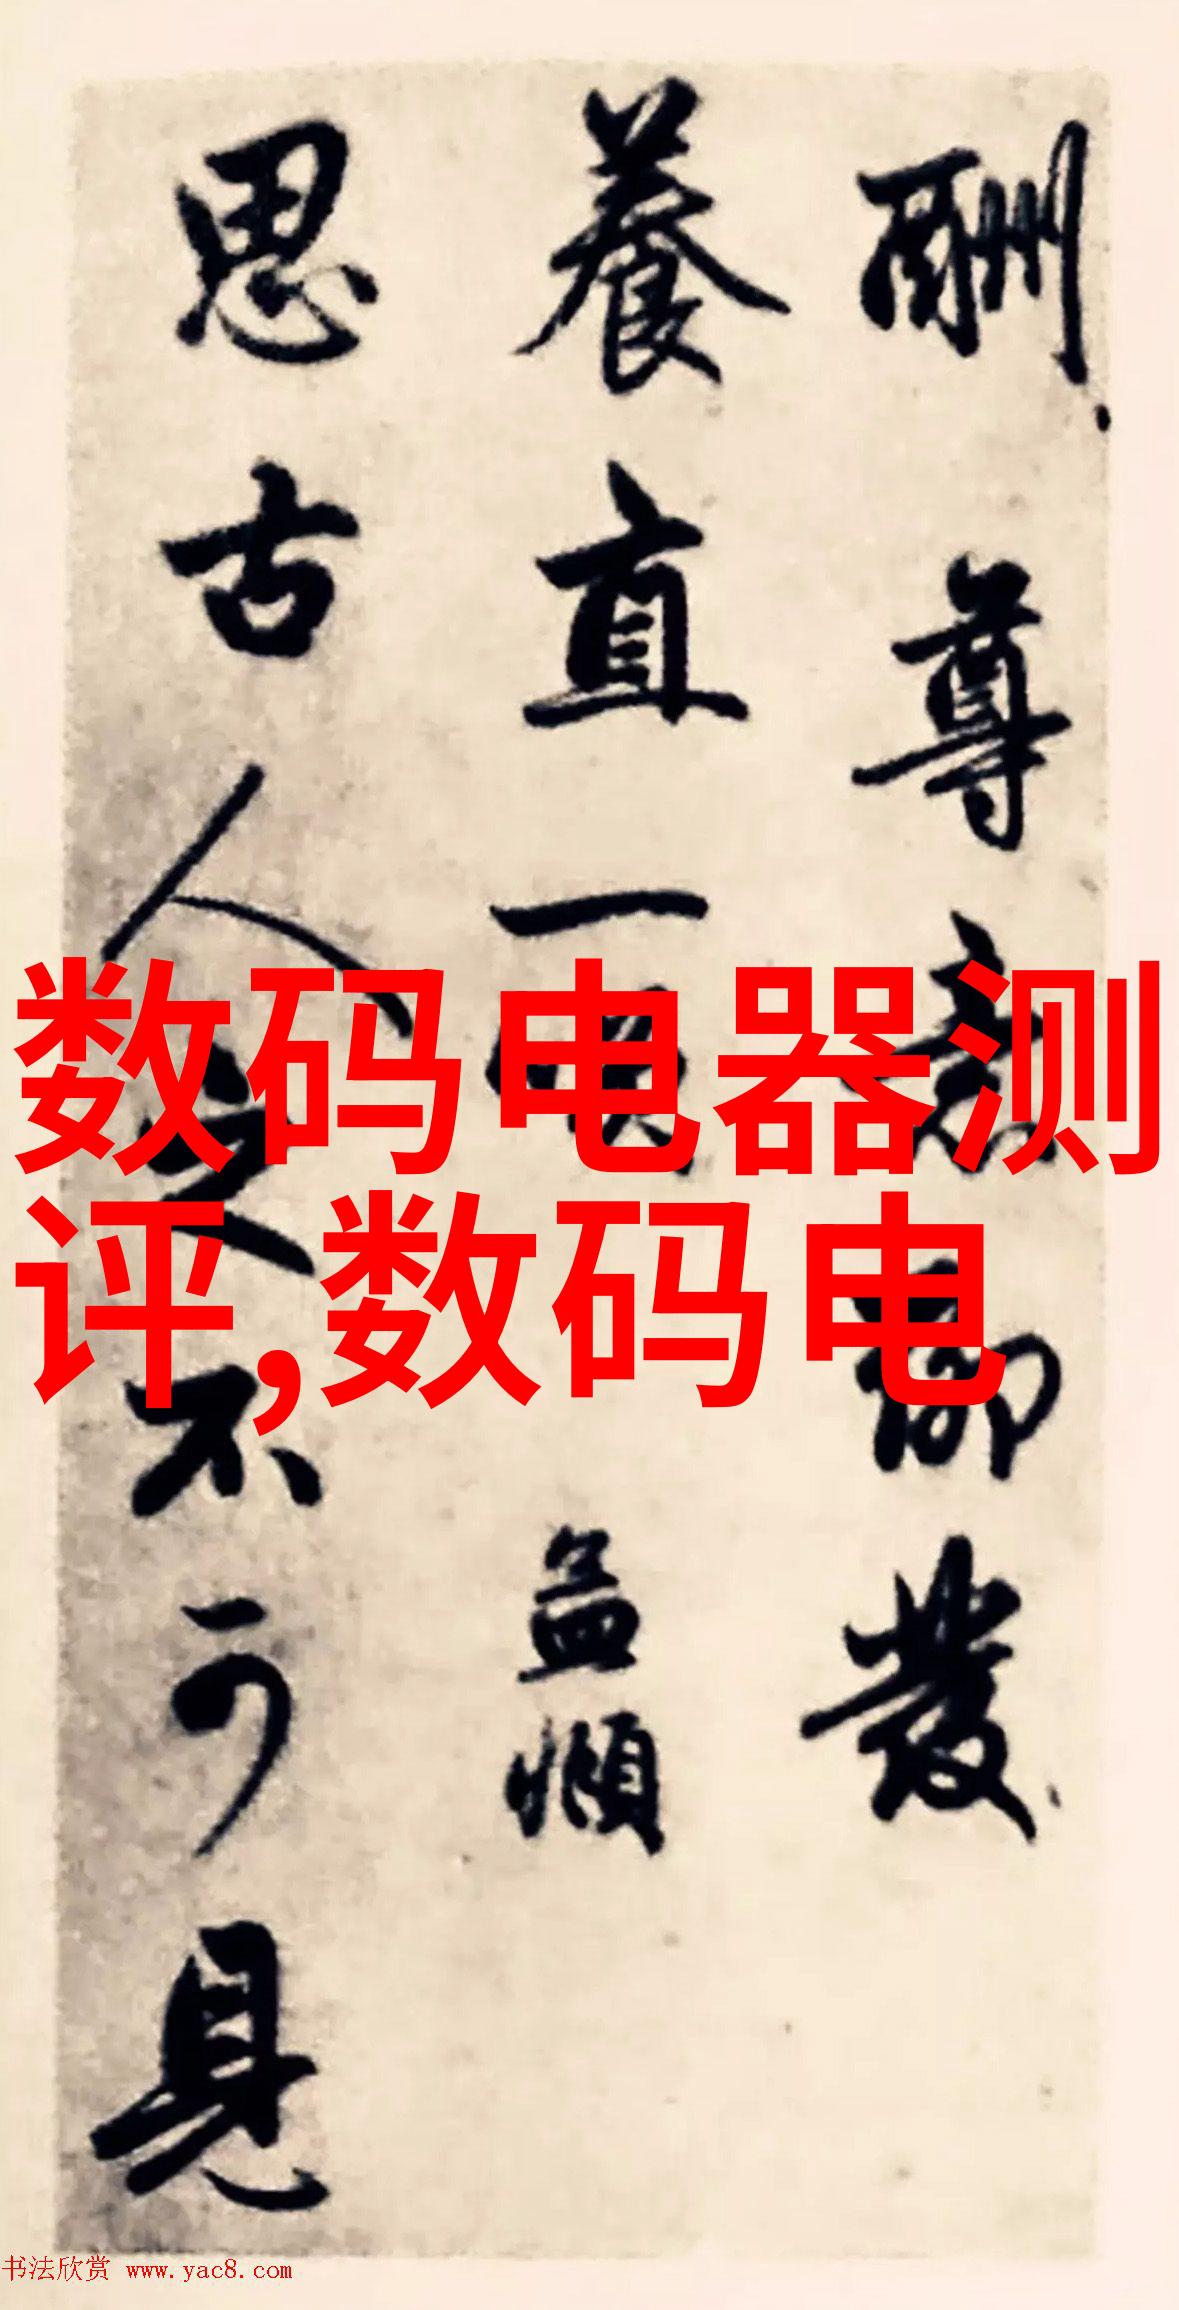 酬尊意聊發
養直一
孟頫
思古人之不可見
数码电器测
评,数码电
书法欣赏 www.yac8.com